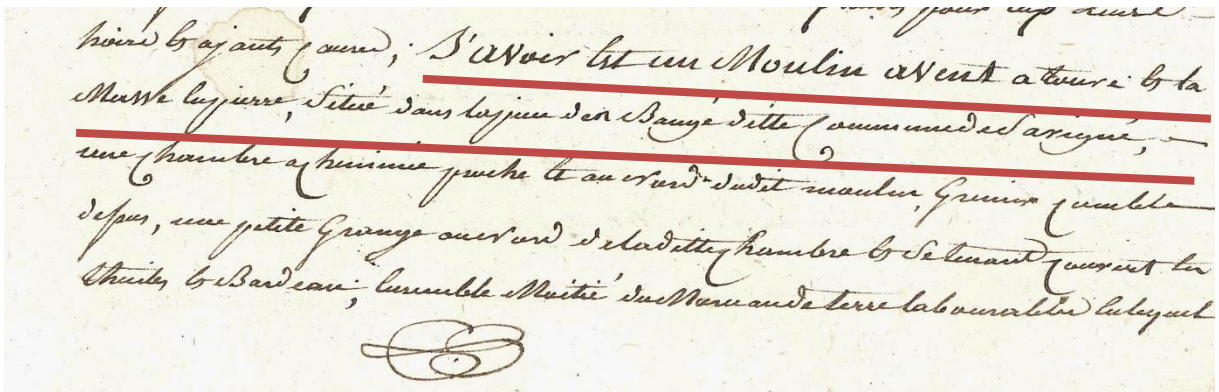 hoirs & ajants cause; S'avoir Est un Moulin avent a toure & la
Masse en pierre, Situé dans la de Baugé ditte Commune de Savigné, -
une chambre a cheminée proche & au Nord dudit moulin, Grenier comble
desus, une petite Grange au Nord de la ditte chambre & Se tenant couvert en
thuiles & Bardeau; Ensemble Moitié du Morceau de terre labourable lequel